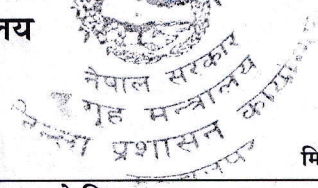 लय
नेपाल सरकार
गृह मन्त्रालय
जिल्ला प्रशासन कार्या
मि